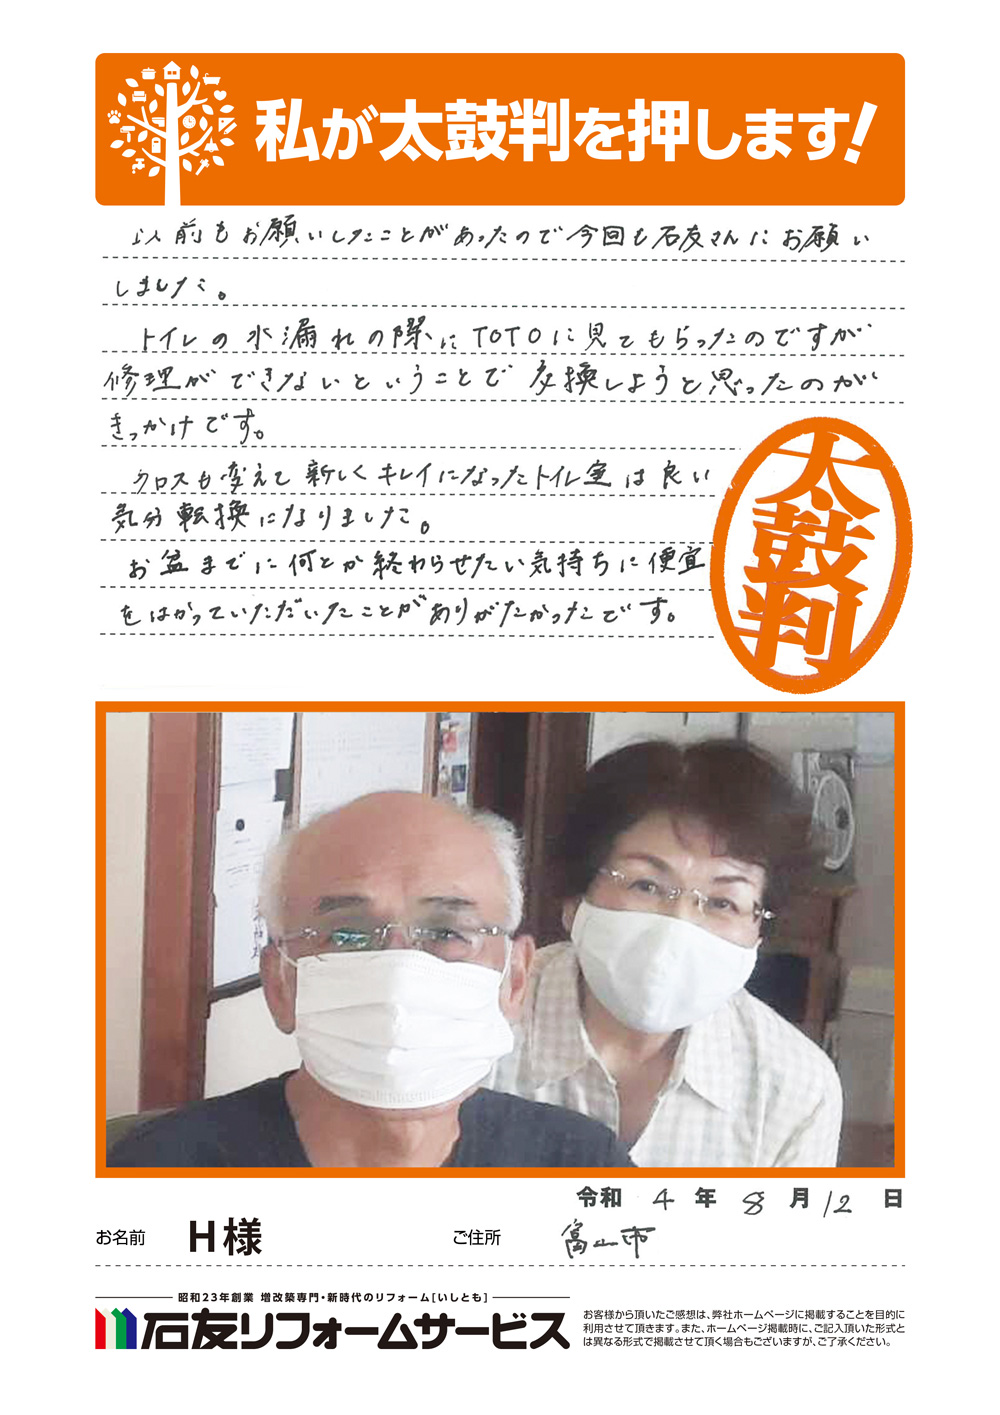 私が太鼓判を押します!
以前もお願いしたことがあったので今回も石友さんにお願い
しました。
トイレの水漏れの際にTOTOに見てもらったのですが
修理ができないということで交換しようと思ったのが
きっかけです。
クロスも変えて新しくキレイになったトイレ室は良い
気分転換になりました。
お盆までに何とか終わらせたい気持ちに便宜
をはかっていただいたことがありがたかったです。
太鼓判
令和4年8月12日
お名前 H様 ご住所 富山市
昭和23年創業 増改築専門・新時代のリフォーム[いしとも]
石友リフォームサービス
お客様から頂いたご感想は、弊社ホームページに掲載することを目的に
利用させて頂きます。また、ホームページ掲載時に、ご記入頂いた形式と
は異なる形式で掲載させて頂く場合もございますが、ご了承ください。